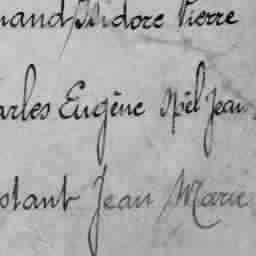 nand Isidore Pierre
arles Eugène Noël Jean
stant Jean Marie